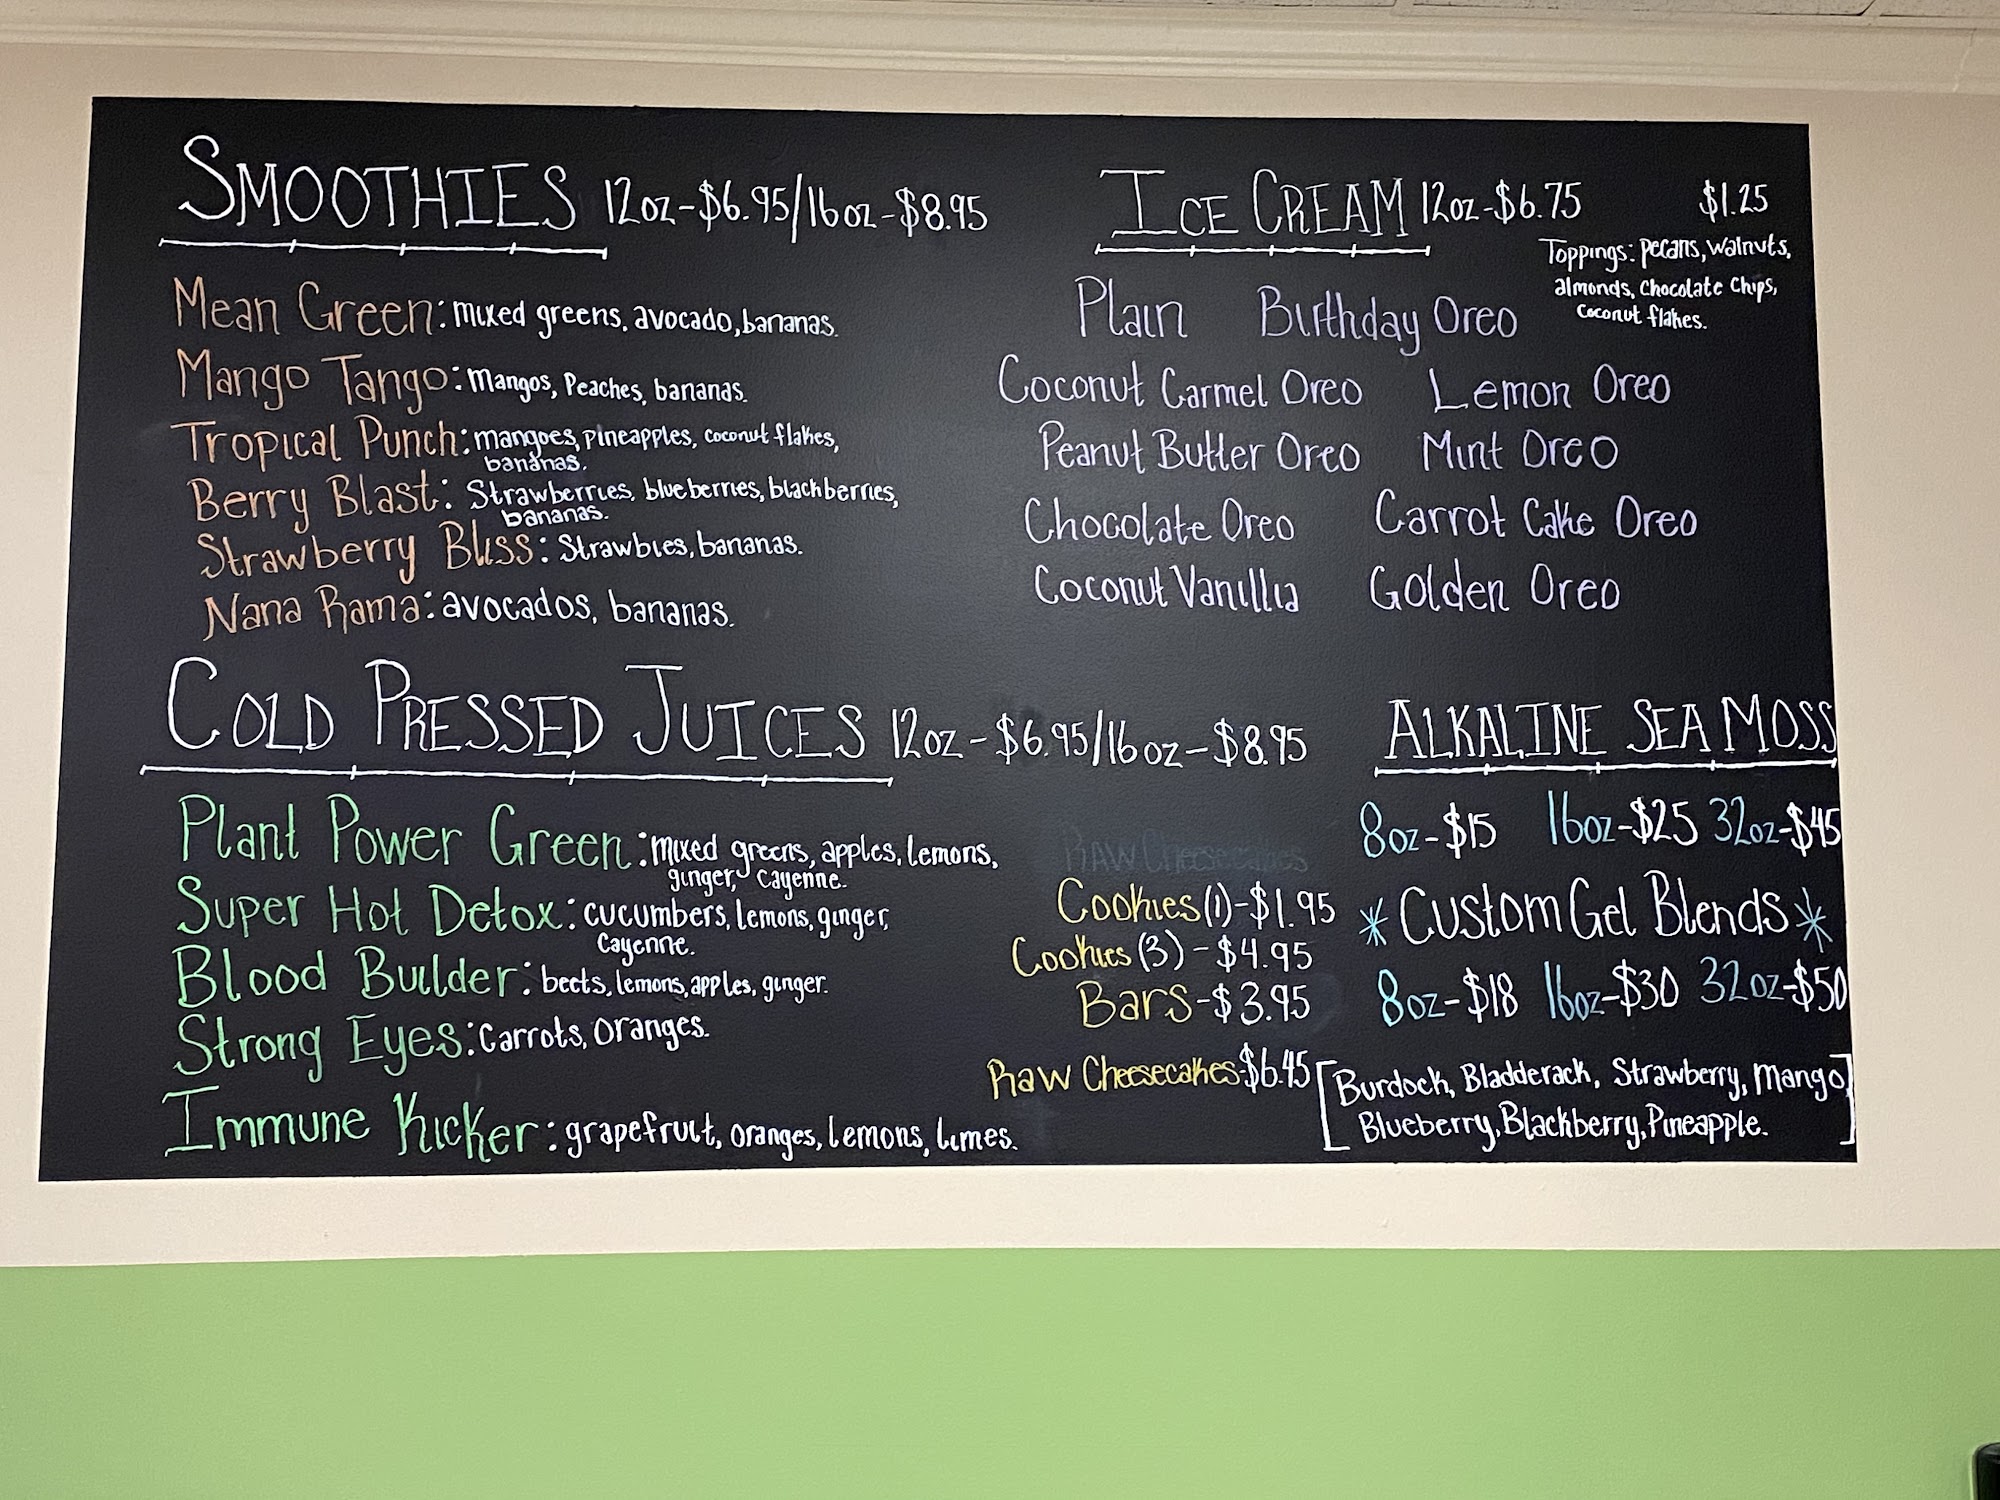 SMOOTHIES 12oz-$6.95/16oz-$8.95
Mean Green: mixed greens, avocado, bananas.
Mango Tango: mangos, Peaches, bananas.
Tropical Punch: mangoes, pineapples, coconut flakes,
bananas.
Berry Blast: Strawberries, blueberries, blackberries,
bananas.
Strawberry Bliss: Strawbies, bananas.
Nana Rama: avocados, bananas.
ICE CREAM 12oz-$6.75 $1.25
Toppings: pecans, walnuts,
almonds, chocolate chips,
coconut flakes.
Plain Birthday Oreo
Coconut Carmel Oreo Lemon Oreo
Peanut Butter Oreo Mint Oreo
Chocolate Oreo Carrot Cake Oreo
Coconut Vanillia Golden Oreo
COLD PRESSED JUICES 12oz-$6.95/16oz-$8.95
Plant Power Green: mixed greens, apples, lemons,
ginger, cayenne.
Super Hot Detox: cucumbers, lemons, ginger,
cayenne.
Blood Builder: beets, lemons, apples, ginger.
Strong Eyes: carrots, oranges.
Immune Kicker: grapefruit, oranges, lemons, limes.
RAW Cheesecakes
Cookies (1)-$1.95
Cookies (3)-$4.95
Bars-$3.95
Raw Cheesecakes-$6.45
ALKALINE SEA MOSS
8oz-$15 16oz-$25 32oz-$45
*Custom Gel Blends*
8oz-$18 16oz-$30 32oz-$50
[Burdock, Bladderack, Strawberry, Mango
Blueberry, Blackberry, Pineapple.]